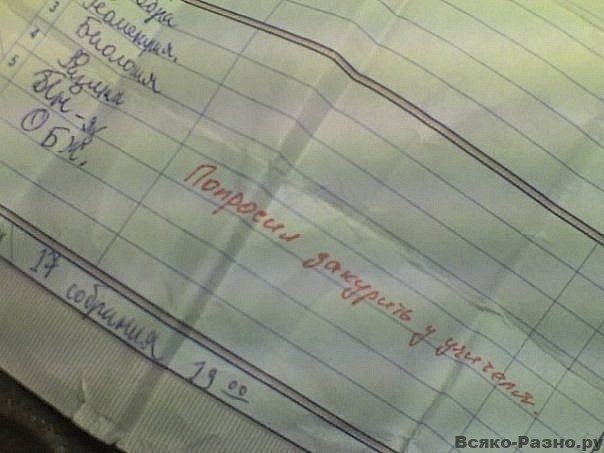 3
Геометрия.
4 Биология
Физика
5 Ин-яз
ОБЖ.
Попросил закурить у учителя.
17 собрания 19 00
Всяко-Разно.ру